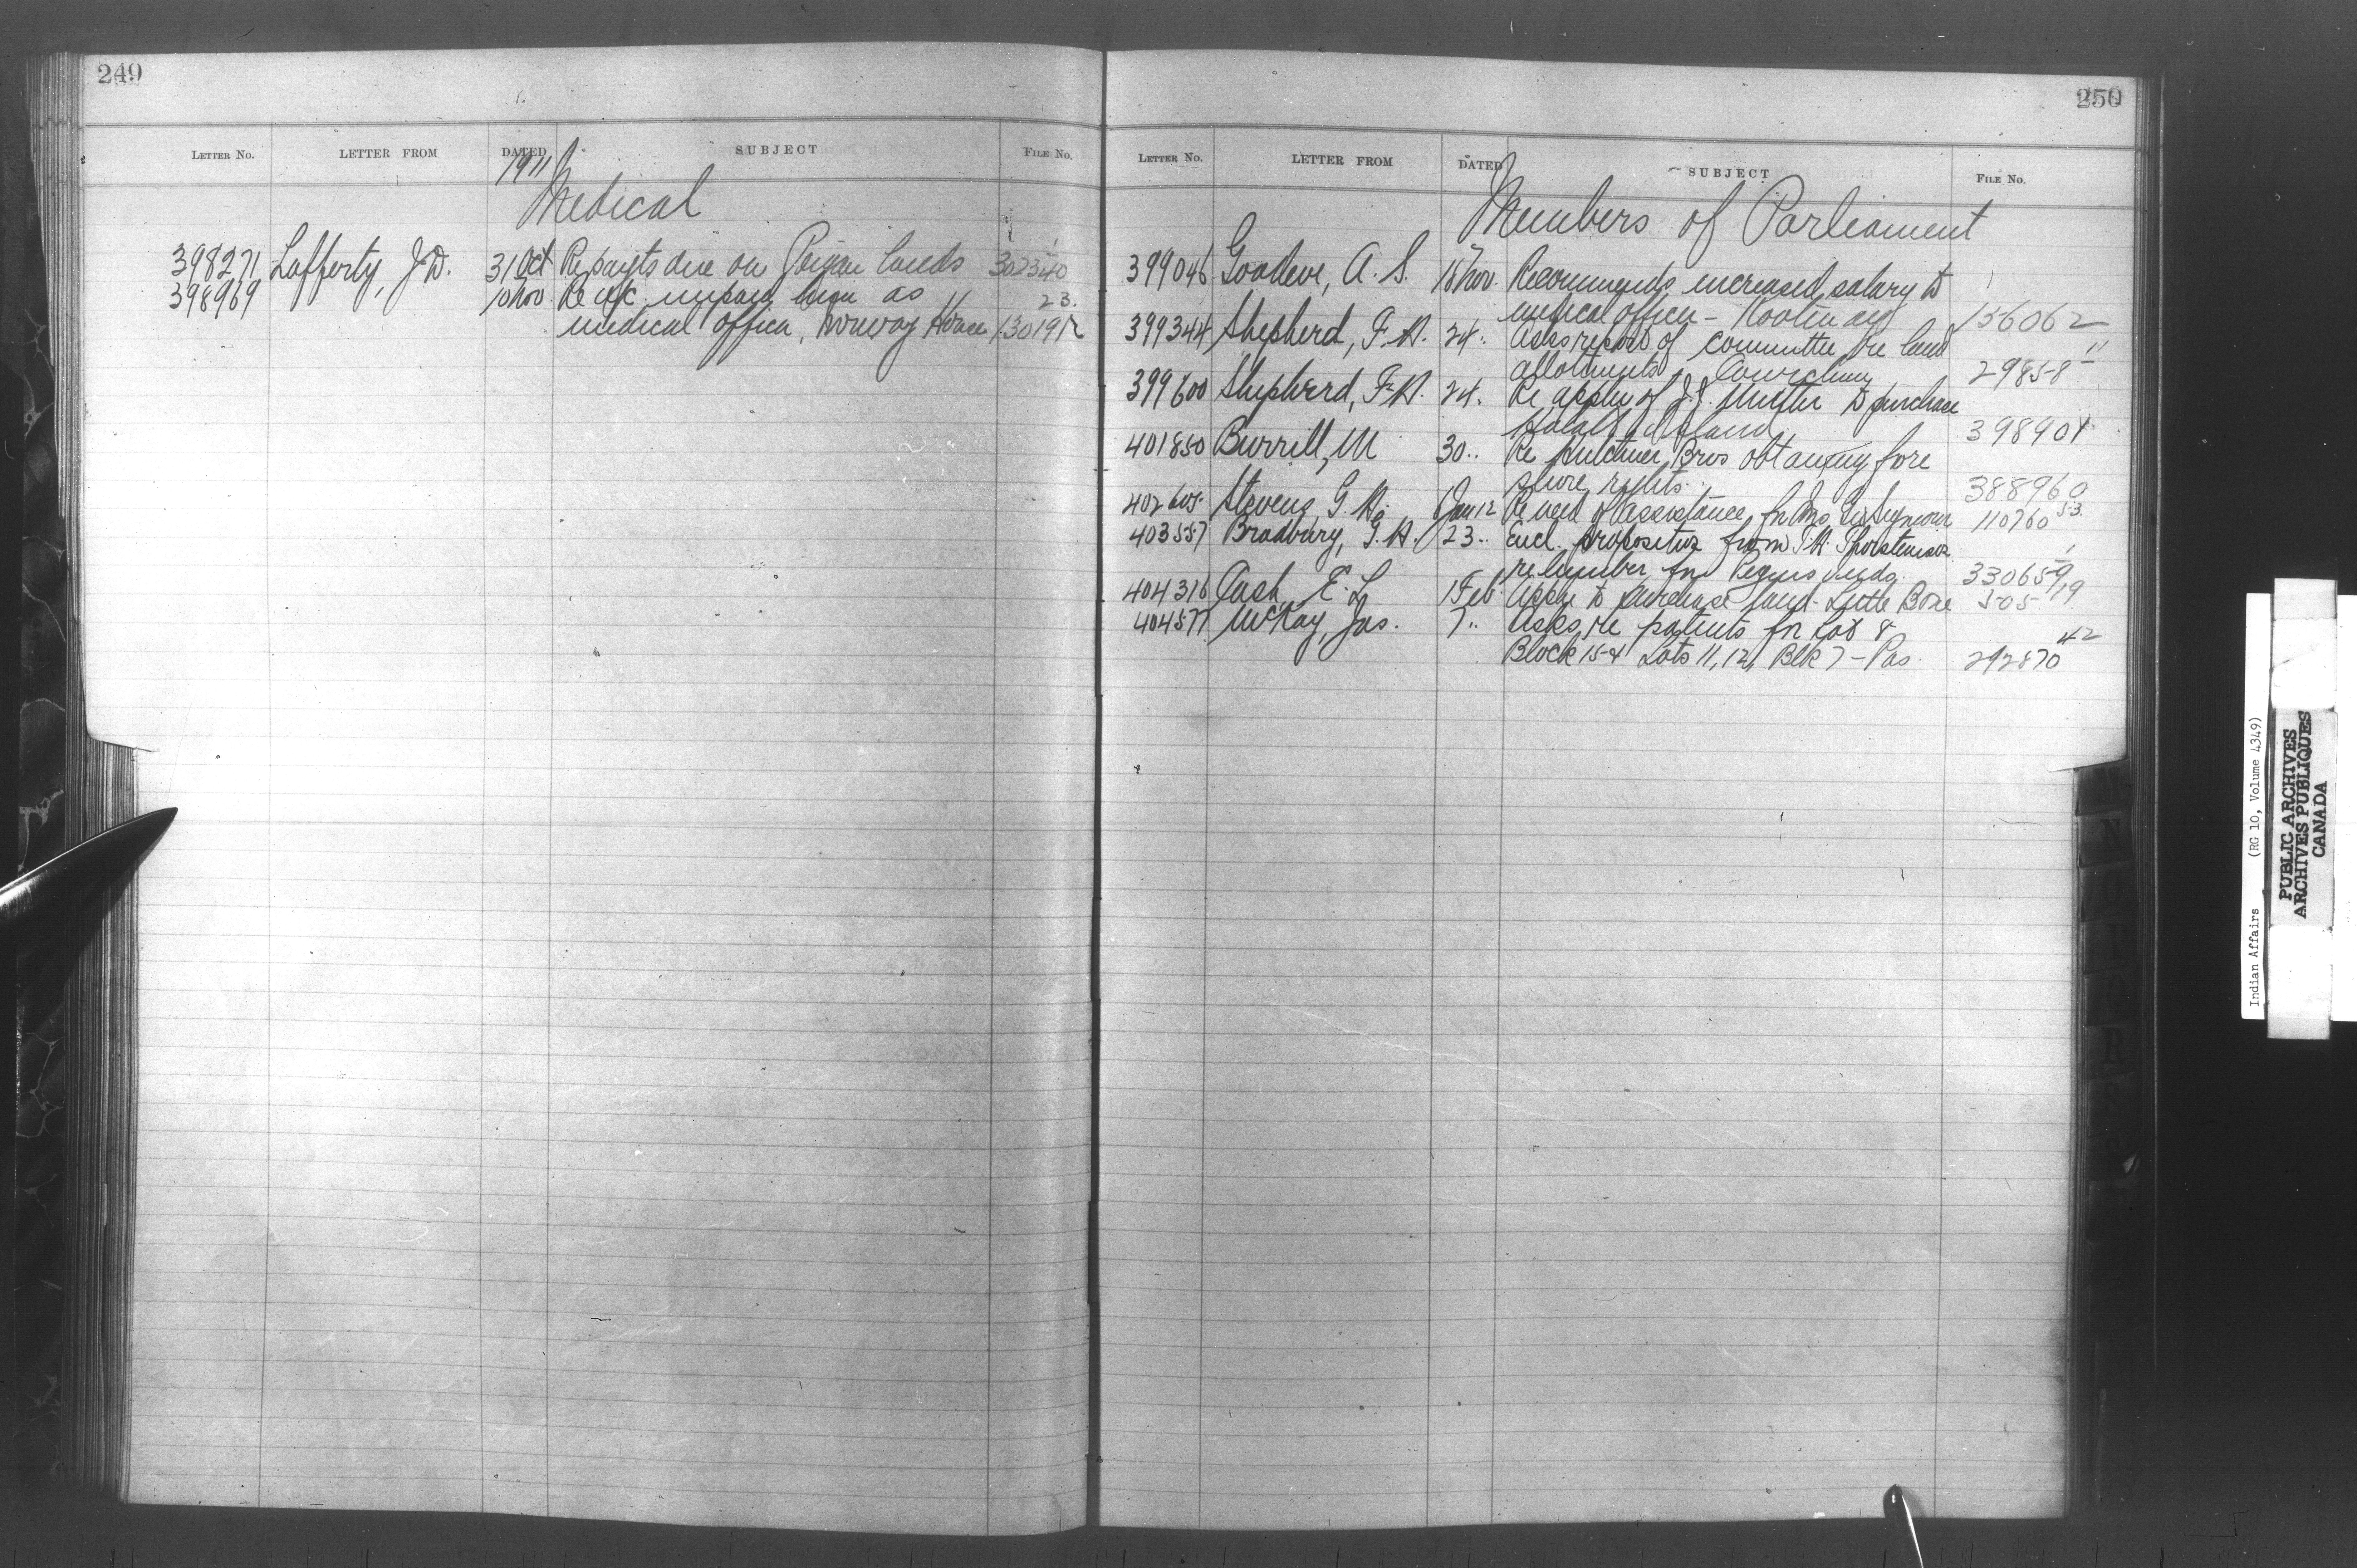 249
LETTER NO. LETTER FROM DATED SUBJECT FILE NO.
1911
Medical
398271 Lafferty, J.D. 31 Oct Re payts due on Peigan lands 302340
398969 10 Nov. Re a/c as 23
medical officer, Norway House 130191
250
LETTER NO. LETTER FROM DATED SUBJECT FILE NO.
Members of Parliament
399046 Goodeve, A. S. 18 Nov. Recommends increased salary to
medical officer - Kootenay 156062
399344 Shepherd, F.H. 24 " Asks report of committee re land 11
allotments Cowichan 29858
399600 Shepherd, F.H. 24 " Re appln of J.J. to purchase
Island 398904
401850 Burrill, M 30 " Re Bros obtaining fore
shore rights 388960
402605 Stevens G. H. Jan 12 Re need of assistance for 110760 53
403557 Bradbury, G.H. 23 " Encl. proposition from T.H. Thorsteinson
re lumber for Peguis Inds. 330659
404316 Cash E. L 1 Feb. Appln to purchase land - Little Bone 505 19
404577 McKay, Jas. 7 " Asks re patents for Lot 8
Block 154 Lots 11, 12, Blk 7 - Pas 292870 42
Indian Affairs (RG 10, Volume 4349)
PUBLIC ARCHIVES
ARCHIVES PUBLIQUES
CANADA